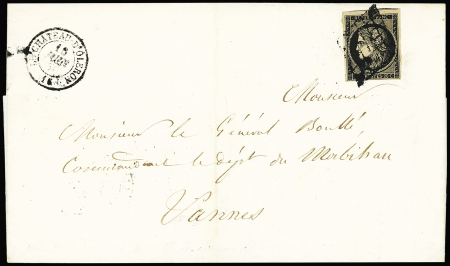 LE CHATEAU-D'OLERON
15
(16)
Monsieur
Monsieur le Général Boullé,
Commandant le Dépt du Morbihan
Vannes